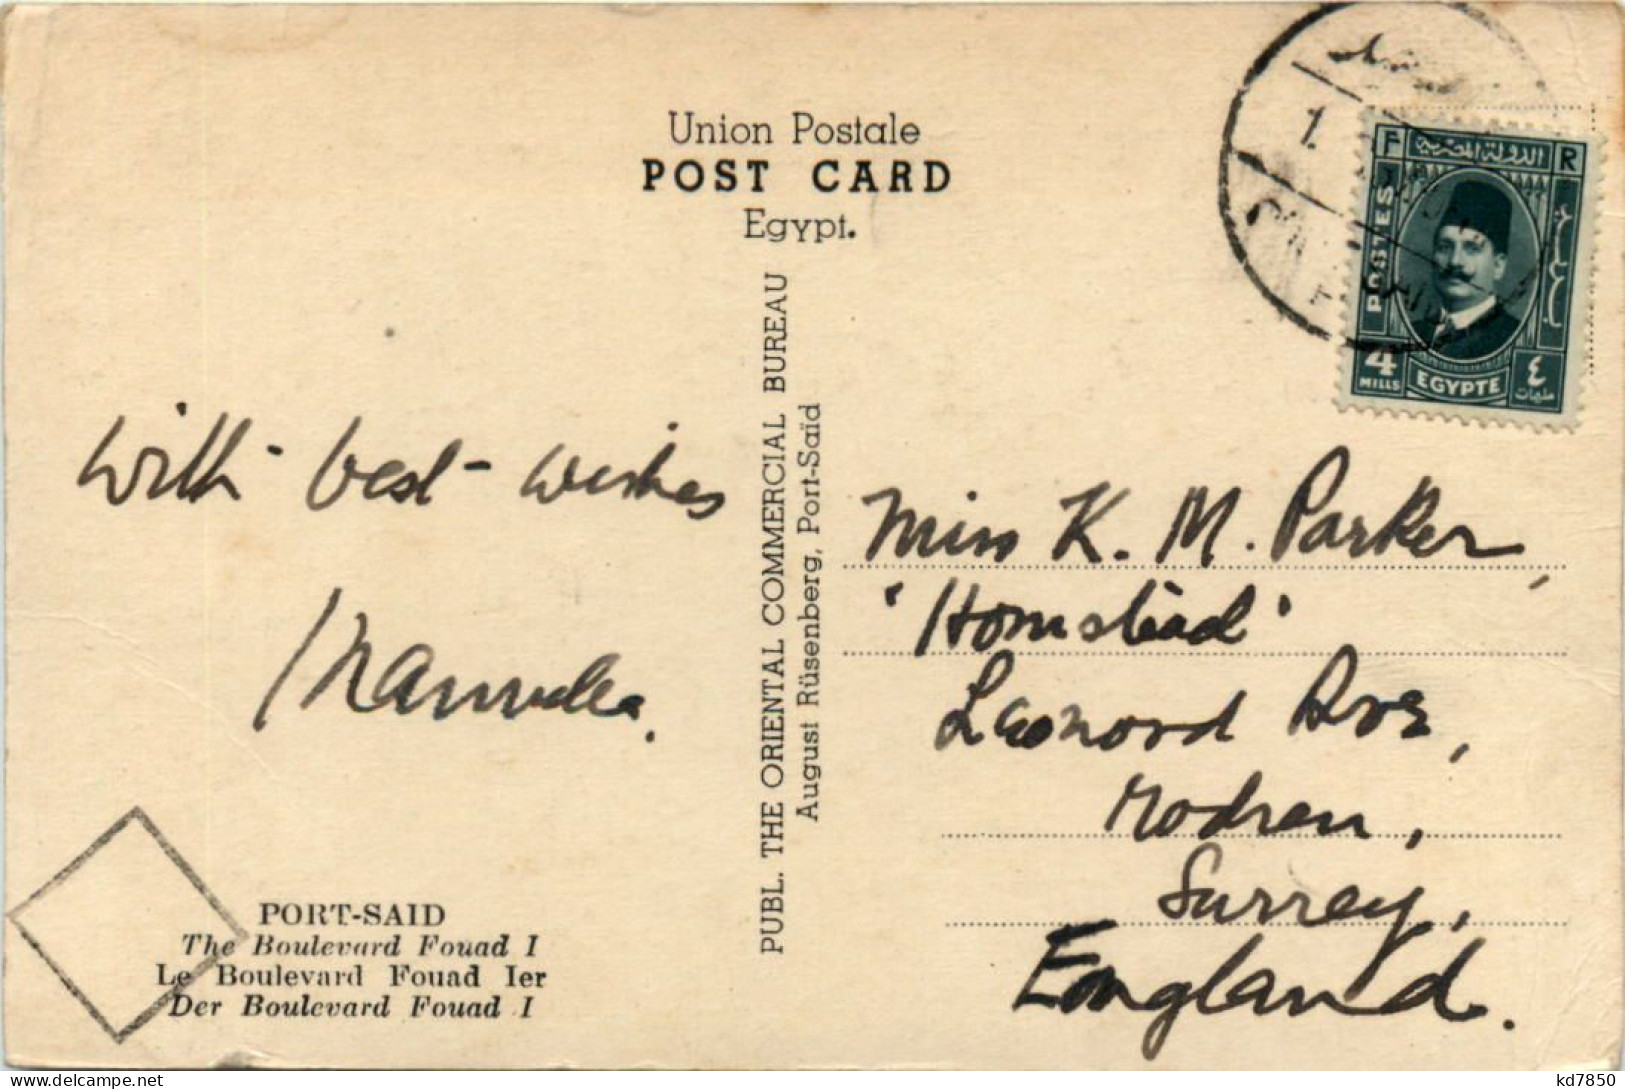 Union Postale
POST CARD
Egypt.
1.
F R
الدولة المصرية
POSTES
4
MILLS
EGYPTE
٤
مليمات
PUBL. THE ORIENTAL COMMERCIAL BUREAU
August Rüsenberg, Port-Saïd
With best wishes
Miss K. M. Parker,
'Homstead'
Leonord Ave,
Modren,
Surrey,
England.
PORT-SAID
The Boulevard Fouad I
Le Boulevard Fouad Ier
Der Boulevard Fouad I
kd7850